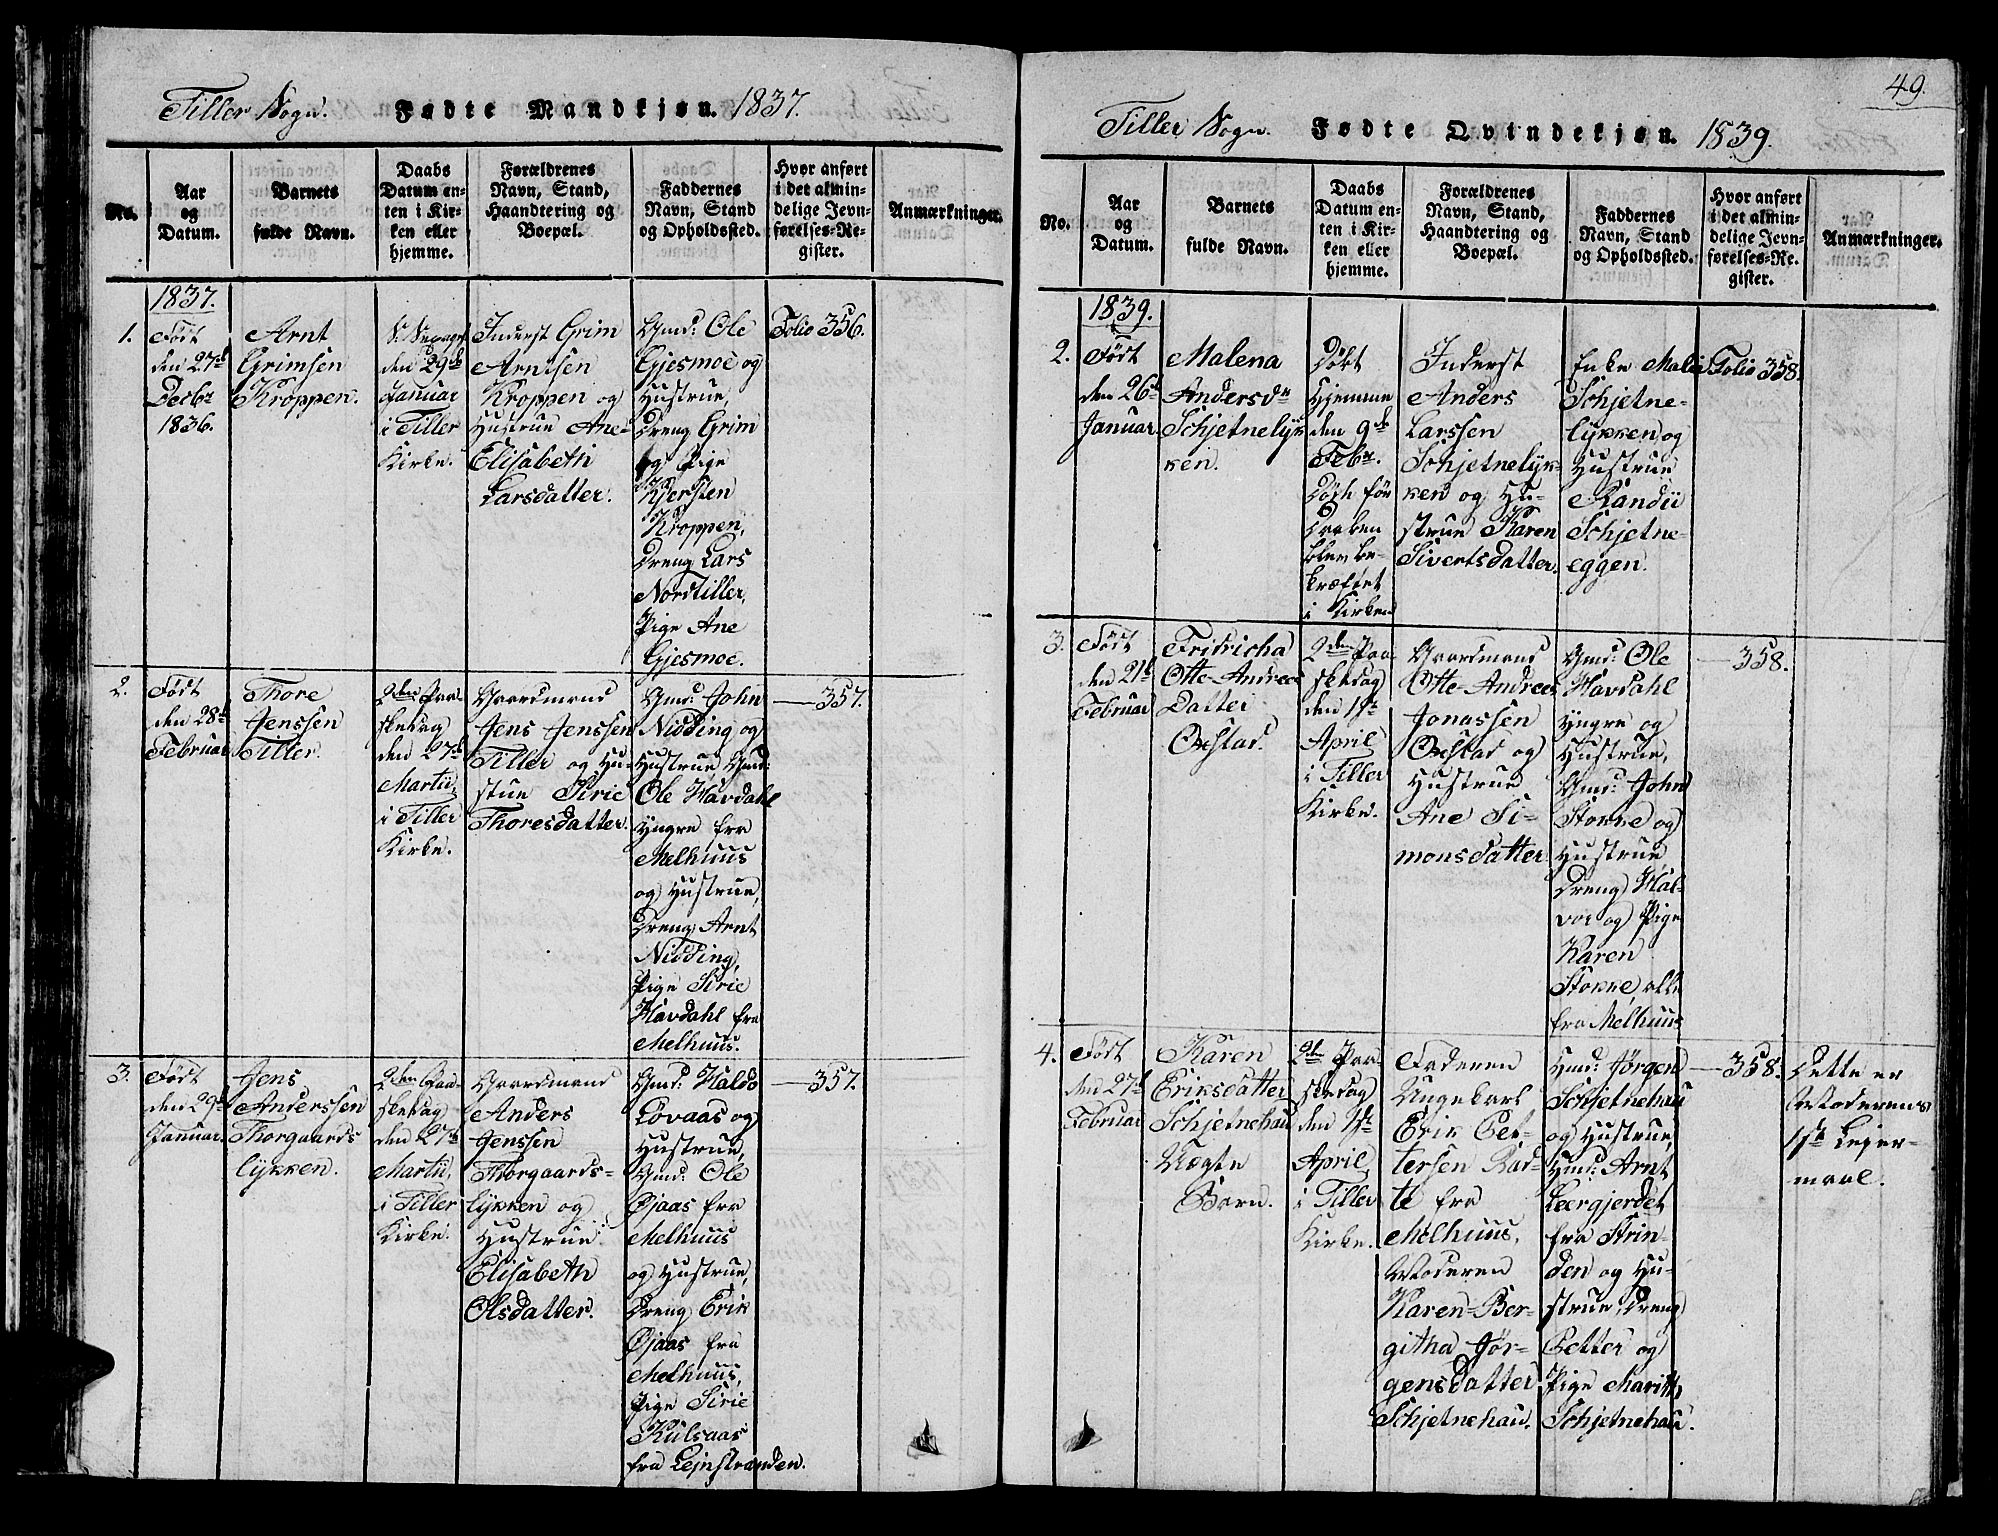 Tiller Sogn. Fødte Mandkjøn. 1837.
No.
Aar
og
Datum.
Barnets
fulde Navn.
Daabs
Datum en-
ten i Kir-
ken eller
hjemme.
Forældrenes
Navn, Stand,
Haandtering og
Boepæl.
Faddernes
Navn, Stand
og Opholdssted.
Hvor anført
i det almin-
delige Jevn-
førelses-Re-
gister.
Anmærkninger.
1837.
1.
Født
den 27de
Decbr
1836.
Arnt
Grimsen
Kroppen.
den 29de
Januar
i Tiller
Kirke.
Inderst Grim
Arntsen
Kroppen og
Hustrue Ane-
Elisabeth
Larsdatter.
Gmd: Ole
Gjesmoe og
Hustrue,
Dreng Grim
og Pige
Kjersten
Kroppen,
Dreng Lars
Nordtiller,
Pige Ane
Gjesmoe.
Folio 356.
2.
Født
den 28de
Februar
Thore
Jenssen
Tiller.
2den Paa-
skedag
den 27de
Martii,
i Tiller
Kirke.
Gaardmand
Jens Jenssen
Tiller og Hu-
strue Sirie
Thoresdatter.
Gmd: John
Nidding og
Hustrue, Gmd:
Ole Havdahl
yngre fra
Melhuus
og Hustrue,
Dreng Arnt
Nidding,
Pige Sirie
Havdahl fra
Melhuus.
— 357.
3.
Født
den 29de
Januar.
Jens
Anderssen
Thorgaards
lykken.
2den Paa-
skedag
den 27de
Martii,
i Tiller
Kirke.
Gaardmand
Anders
Jenssen
Thorgaards-
lykken og
Hustrue
Elisabeth
Olsdatter.
Gmd: Haldo
Lovaas og
Hustrue,
Gmd: Ole
Øjaas fra
Melhuus
og Hustrue,
Dreng Erik
Øjaas fra
Melhuus,
Pige Sirie
Kulsaas
fra Lejnstranden.
— 357.
49.
Tiller Sogn. Fødte Qvindekjøn. 1839.
No.
Aar
og
Datum.
Barnets
fulde Navn.
Daabs
Datum en-
ten i Kir-
ken eller
hjemme.
Forældrenes
Navn, Stand,
Haandtering og
Boepæl.
Faddernes
Navn, Stand
og Opholdssted.
Hvor anført
i det almin-
delige Jevn-
førelses-Re-
gister.
Anmærkninger.
1839.
2.
Født
den 26de
Januar.
Malena
Andersdr
Schjetnelyk
ken.
Døbt
Hjemme
den 9de
Febr.
Døde før
Daaben
blev be-
kræftet
i Kirken
Inderst
Anders
Larssen
Schjetnelyk-
ken og Hu-
strue Karen
Sivertsdatter.
Enke Malin
Schjetne-
lykken og
Hustrue
Randii
Schjetne-
eggen.
Folio 358.
3.
Født
den 21de
Februar
Fridricha
Otte-Andreas
Datter
Oxstad.
2den Paa-
skedag
den 1ste
April
i Tiller
Kirke.
Gaardmand
Otte-Andreas
Jonassen
Oxstad og
Hustrue
Ane Si-
monsdatter
Gmd: Ole
Havdahl
yngre og
Hustrue,
Gmd: John
Stokke og
Hustrue,
Dreng Hal-
vor og Pige
Karen
Stokke, alle
fra Melhuus
— 358.
4.
Født
den 27de
Februar
Karen
Eriksdatter
Schjetnehau
Uægte
Barn.
2den Paa-
skedag
den 1ste
April
i Tiller
Kirke.
Faderen
Ungekarl
Erik Pet-
tersen Rad-
te fra
Melhuus,
Moderen
Karen-Ber-
githa Jør-
gensdatter
Schjetnehau.
Hmd: Jørgen
Schjetnehau
og Hustrue,
Hmd: Arnt
Leergjerdet
fra Strin-
den og Hu-
strue, Dreng
Petter og
Pige Marith
Schjetnehau.
— 358.
Dette er
Moderens
1ste Lejer-
maal.